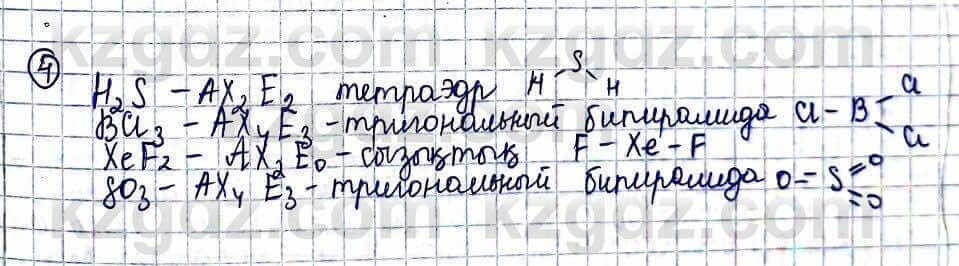 4
H₂S – AX₂E₂ тетраэдр H S H
BCl₃ – AX₄E₃ – тригональный бипирамида Cl – B Cl Cl
XeF₂ – AX₂E₀ – сызықтық F – Xe – F
SO₃ – AX₄ E₃ – тригональный бипирамида O = S =O =O
kzgdz.com